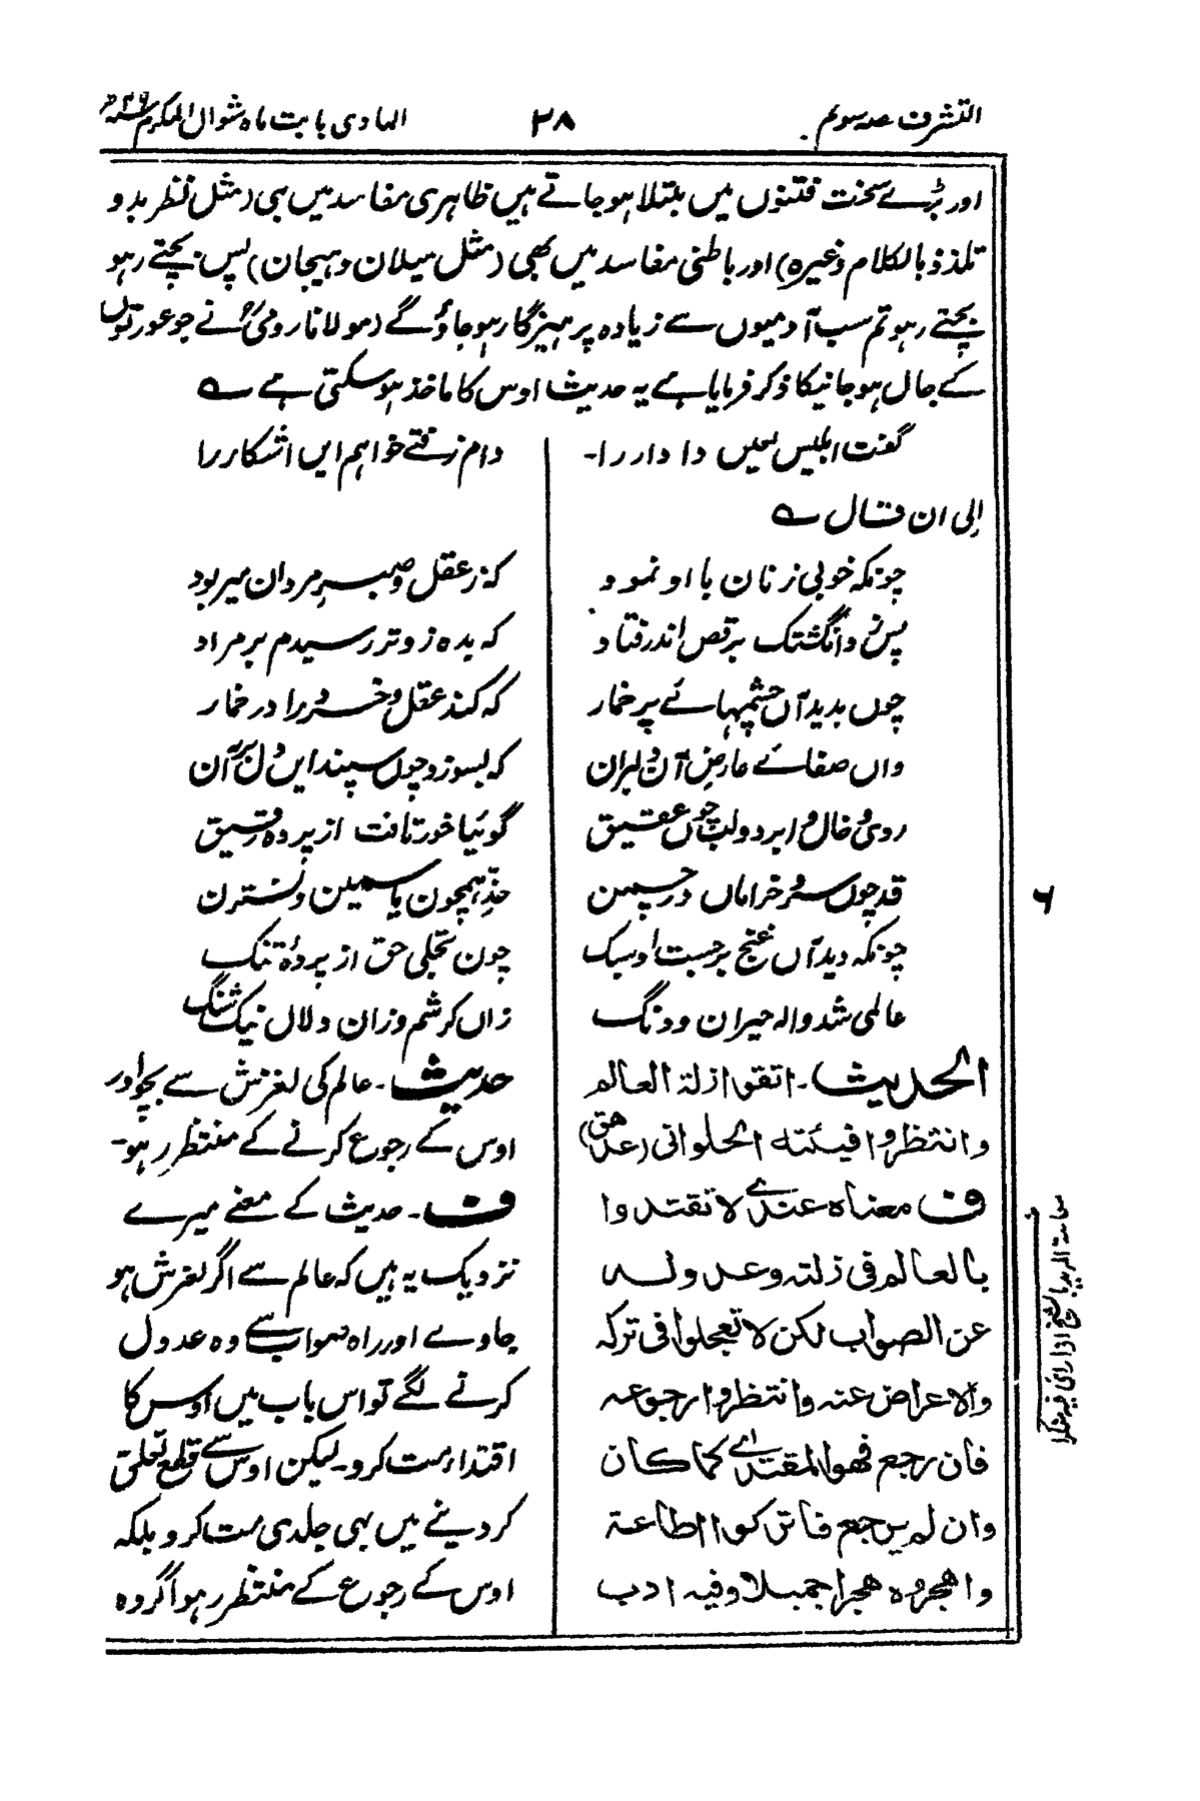 التشرف حصہ سوئم ۲۸ الہادی بابت ماہ شوال المکرم
اور بڑے سخت فتنوں میں مبتلا ہو جاتے ہیں ظاہری مفاسد میں بہی (مثل نظر بد و
تلذذ بالکلام وغیرہ) اور باطنی مفاسد میں بھی (مثل میلان وہیجان) پس بچتے رہو
بچتے رہو تم سب آدمیوں سے زیادہ پرہیزگار ہو جاؤ گے (مولانا رومیؒ نے جو عورتوں
کے جال ہو جانیکا ذکر فرمایا ہے یہ حدیث اوس کا ماخذ ہو سکتی ہے ؎
گفت ابلیس لعیں دا دار را۔ دام زفتے خواہم ایں اشکار را
الی ان قال ؎
چونکہ خوبی زنان با او نمود کہ زعقل و صبر مردان میر بود
پس زد انگشتک برقص اندر فتاد کہ بدہ زوتر رسیدم بر مراد
چوں بدید آں چشمہائے پر خمار کہ کند عقل و خرد را در خمار
واں صفائے عارض آں دلبران کہ بسوزد چوں سپند ایں دل برآن
روی و خال و ابرو و لب چوں عقیق گوئیا خور تافت از پردہ رقیق
قد چوں سرو خراماں در چمن خد ہمچون یاسمین و نسترن
چونکہ دید آں غنج برجست او سبک چون تجلی حق از پردۂ تنک
عالمی شد والہ حیران و دنگ زاں کرشم وزان دلال نیک شنگ
الحدیث۔ اتقوا زلة العالم
وانتظروا فیئته الحلوانی (عد هق)
ف معناہ عندی لا تقتدوا
بالعالم فی زلته وعدوله
عن الصواب لکن لا تعجلوا فی ترکه
والاعراض عنه وانتظروا رجوعه
فان رجع فھوالمقتدی کما کان
وان لم یرجع فاترکوا اطاعة
واهجروہ هجرا جمیلا وفیه ادب
حدیث۔ عالم کی لغزش سے بچو اور
اوس کے رجوع کرنے کے منتظر رہو۔
ف۔ حدیث کے معنے میرے
نزدیک یہ ہیں کہ عالم سے اگر لغزش ہو
جاوے اور راہ صواب سے وہ عدول
کرنے لگے تو اس باب میں اوس کا
اقتدا مت کرو۔ لیکن اوس سے قطع تعلق
کر دینے میں بہی جلدی مت کرو بلکہ
اوس کے رجوع کے منتظر رہو اگر وہ
۶
معاملة المرید بالشیخ اذا رای فیه منکرا